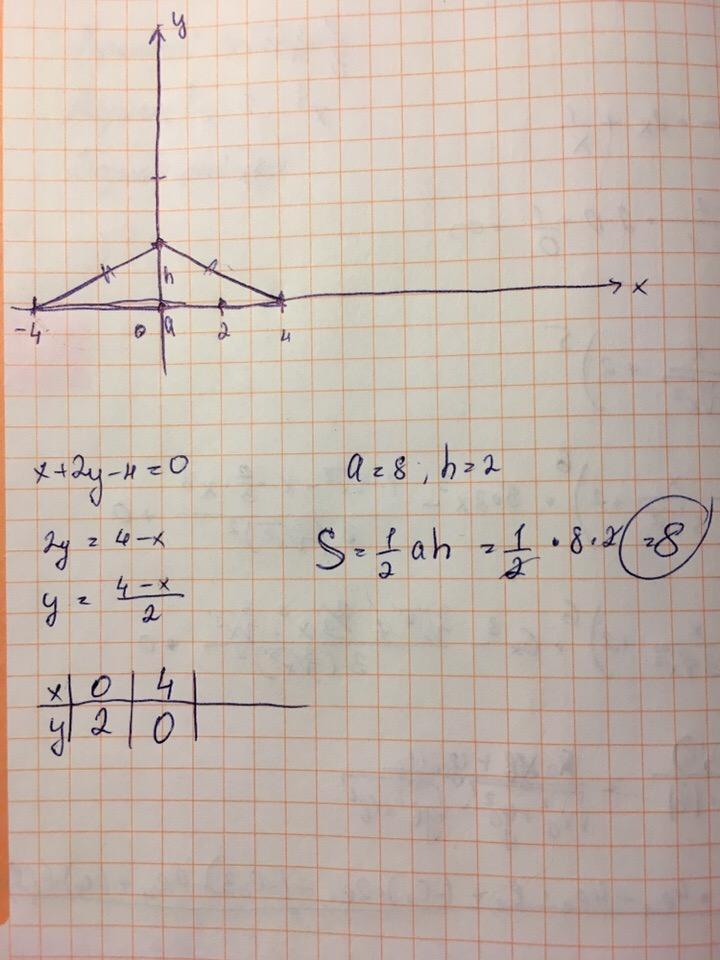 y
h
x
-4 0 a 2 4
x+2y-4=0
a=8, h=2
2y = 4-x
S = 1/2 ah = 1/2 · 8 · 2 = 8
y = 4-x/2
x 0 4
y 2 0